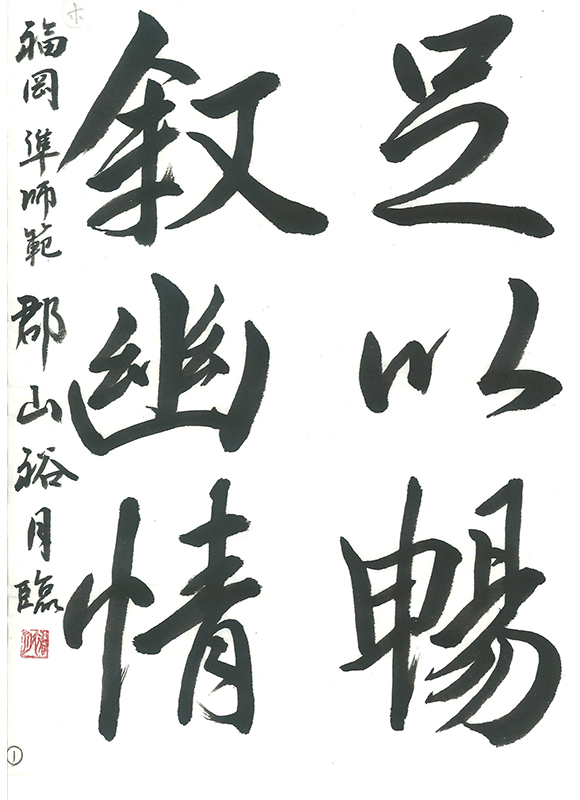 足以暢
叙幽情
福岡 準師範 郡山裕月臨
ホ
1